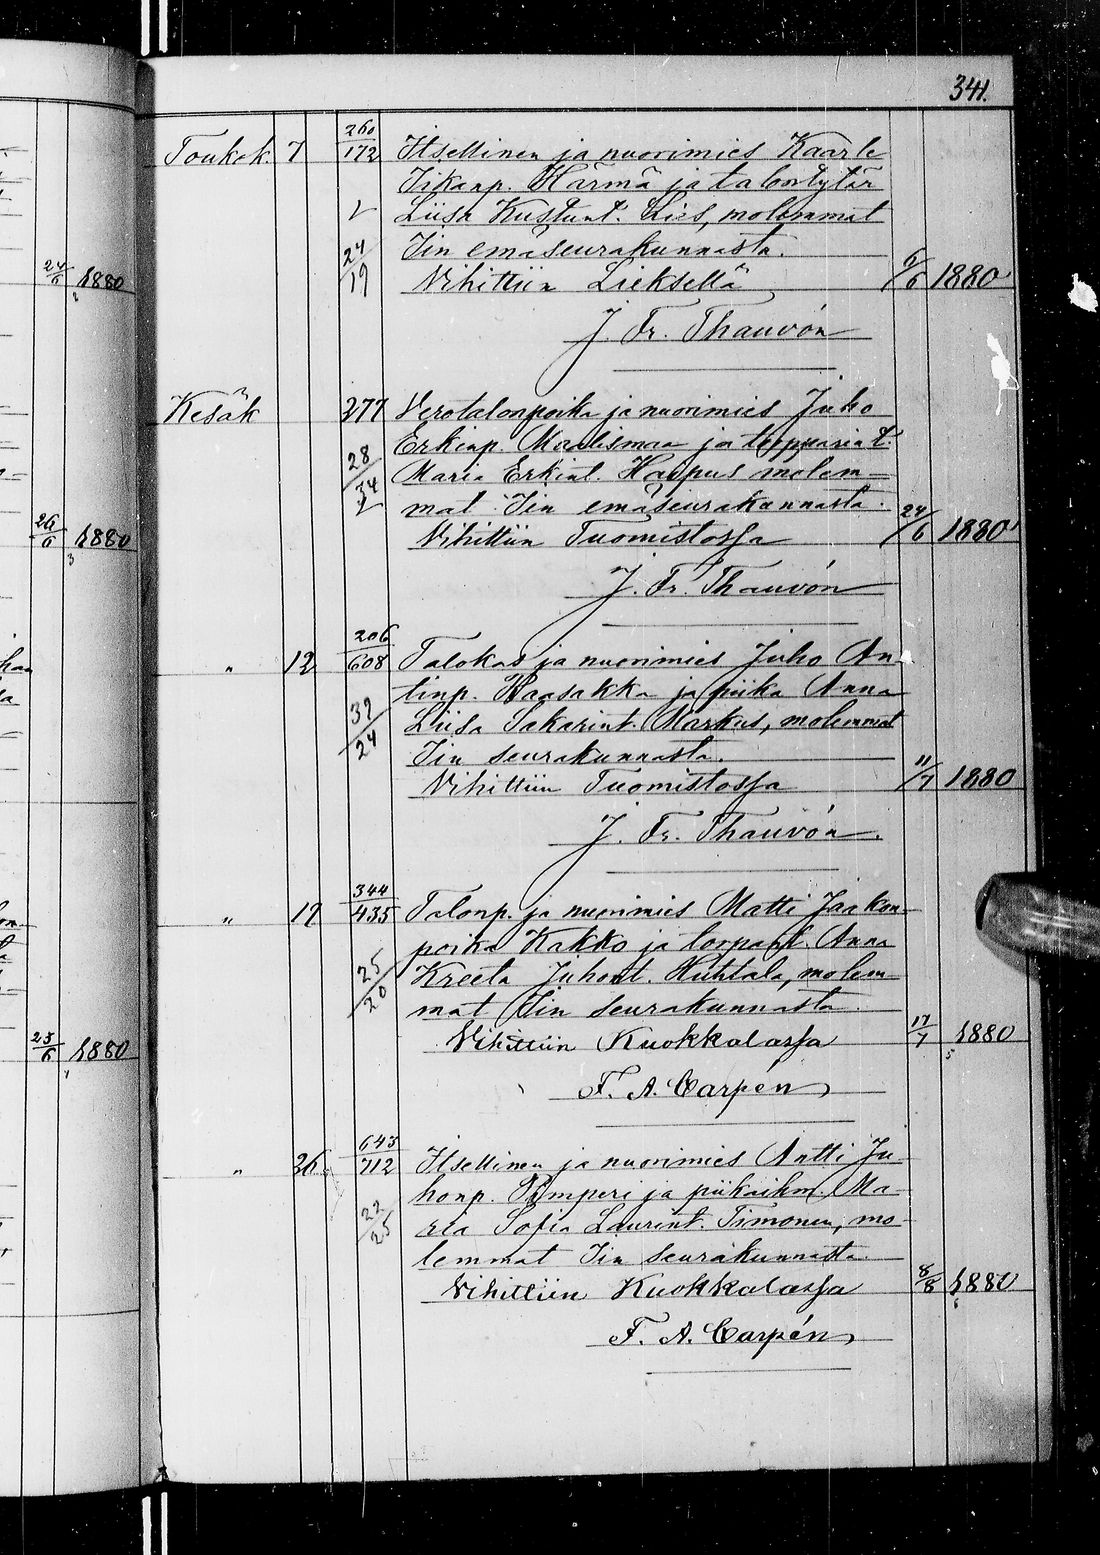 341.
Toukok. 7 260/172 Itsellinen ja nuorimies Kaarle
Iikanp. Härmä ja talontytär
Liisa Kustant. Lies, molemmat
24/19 Iin emäseurakunnasta.
24/6 1880
Vihittiin Lieksellä 6/6 1880
J. Fr. Thauvón
Kesäk 277 Verotalonpoika ja nuorimies Juho
28/34 Erkinp. Maalismaa ja torpparint.
Maria Erkint. Haapus molem-
mat Iin emäseurakunnasta.
26/6 1880
Vihittiin Tuomistossa 24/6 1880
J. Fr. Thauvón
" 12 206/608 Talokas ja nuorimies Juho An-
tinp. Haasakka ja piika Anna
39/24 Liisa Sakarint. Markus, molemmat
Iin seurakunnasta.
Vihittiin Tuomistossa 11/7 1880
J. Fr. Thauvón.
" 19 344/435 Talonp. ja nuorimies Matti Jaakon-
poika Kakko ja torpant. Anna
25/20 Kreeta Juhont. Huhtala, molem-
mat Iin seurakunnasta.
25/6 1880
Vihittiin Kuokkalassa 17/7 1880
F. A. Carpén
" 26 643/712 Itsellinen ja nuorimies Antti Ju-
honp. Pamperi ja piikaihm. Ma-
22/25 ria Sofia Laurint. Timonen, mo-
lemmat Iin seurakunnasta.
Vihittiin Kuokkalassa 8/8 1880
F. A. Carpén